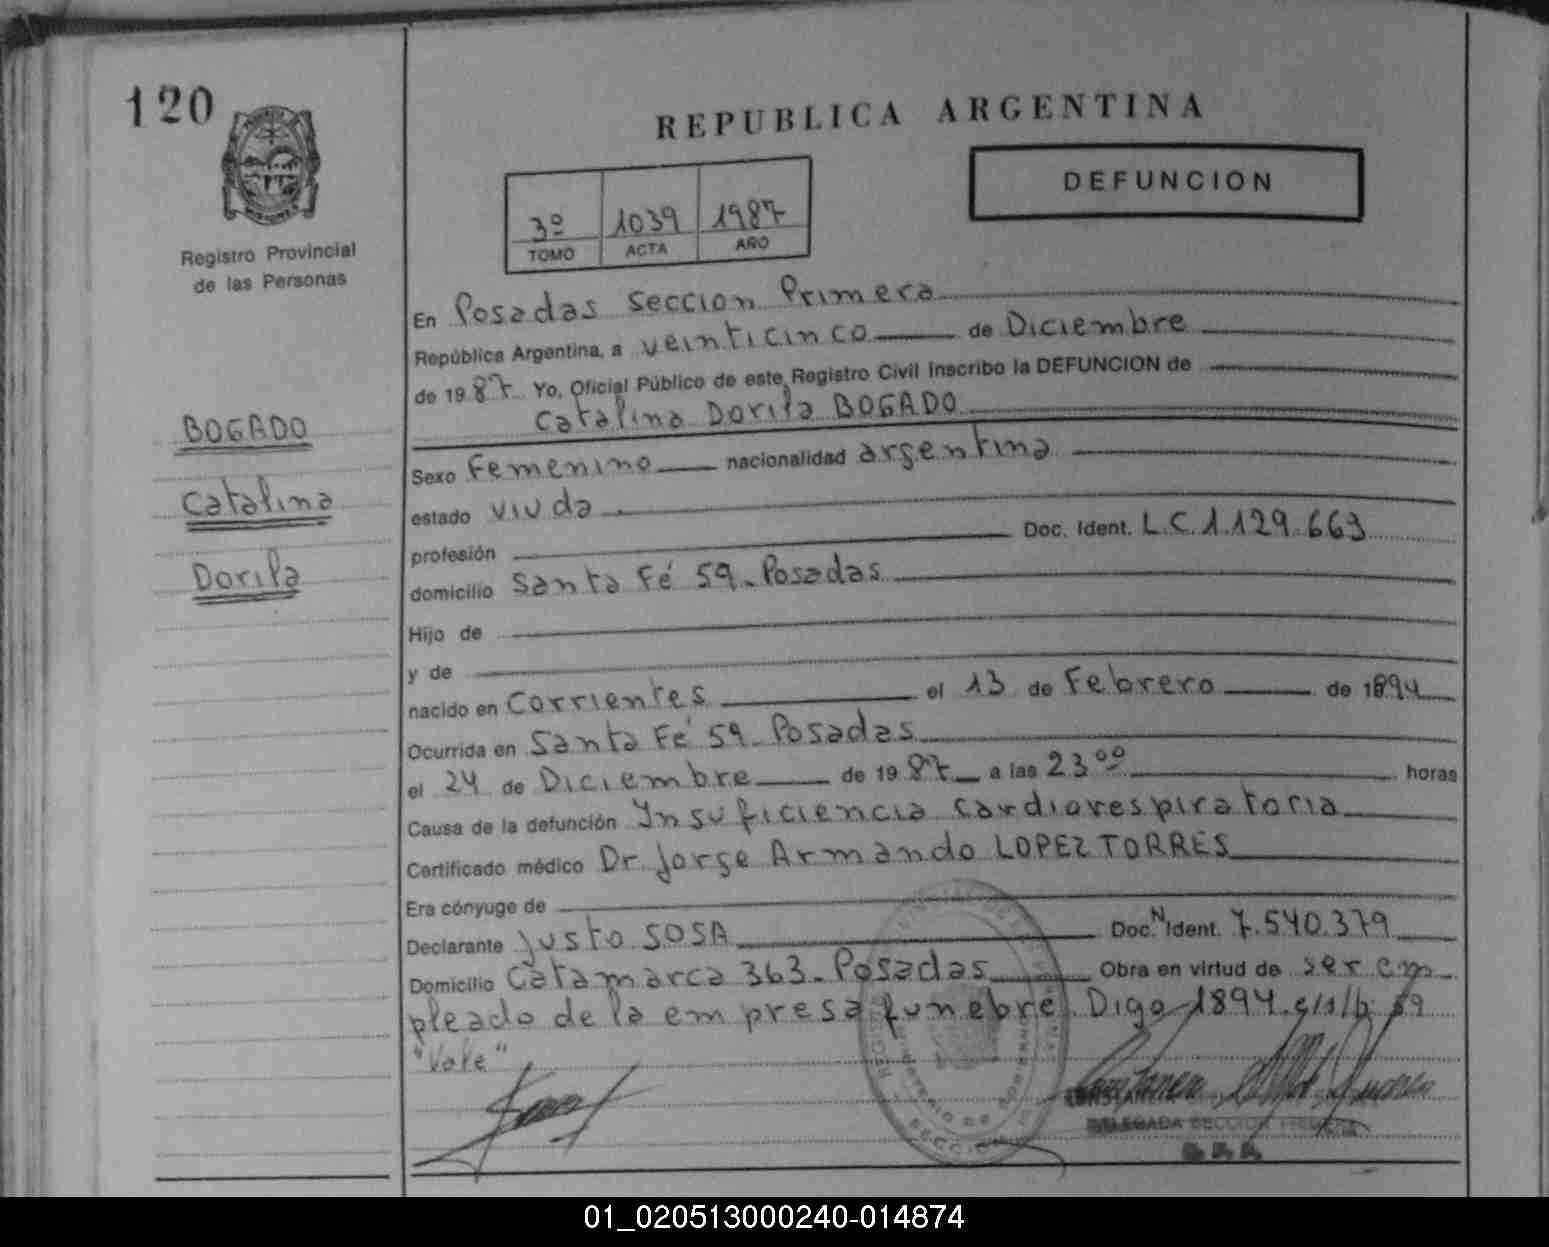 120
REPUBLICA ARGENTINA
DEFUNCION
3º 1039 1987
TOMO ACTA AÑO
Registro Provincial
de las Personas
BOGADO
Catalina
Dorila
En Posadas Seccion Primera
República Argentina, a veinticinco de Diciembre
de 1987 Yo, Oficial Público de este Registro Civil Inscribo la DEFUNCION de
Catalina Dorila BOGADO
Sexo Femenino nacionalidad argentina
estado viuda
profesión Doc. Ident. L.C.1.129.663
domicilio Santa Fé 59 - Posadas
Hijo de
y de
nacido en Corrientes el 13 de Febrero de 1894
Ocurrida en Santa Fé 59 - Posadas
el 24 de Diciembre de 1987 a las 23ºº horas
Causa de la defunción Insuficiencia cardiorespiratoria
Certificado médico Dr. Jorge Armando LOPEZ TORRES
Era cónyuge de
Declarante Justo SOSA Doc. N Ident. 7.540.379
Domicilio Catamarca 363 - Posadas Obra en virtud de ser em
pleado de la empresa funebre. Digo 1894. s/r/b: 59
"Vale"
DELEGADA SECCION PRIMERA
01_020513000240-014874